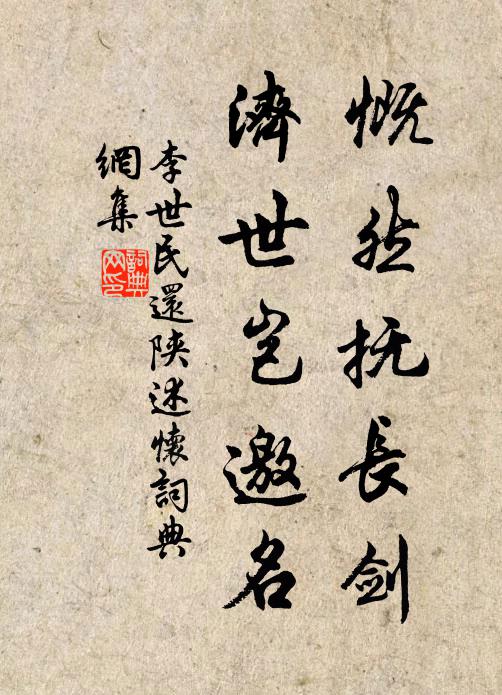 慨然抚長劍
濟世岂邀名
李世民還陕述懷詞典
網集
詞典
网印